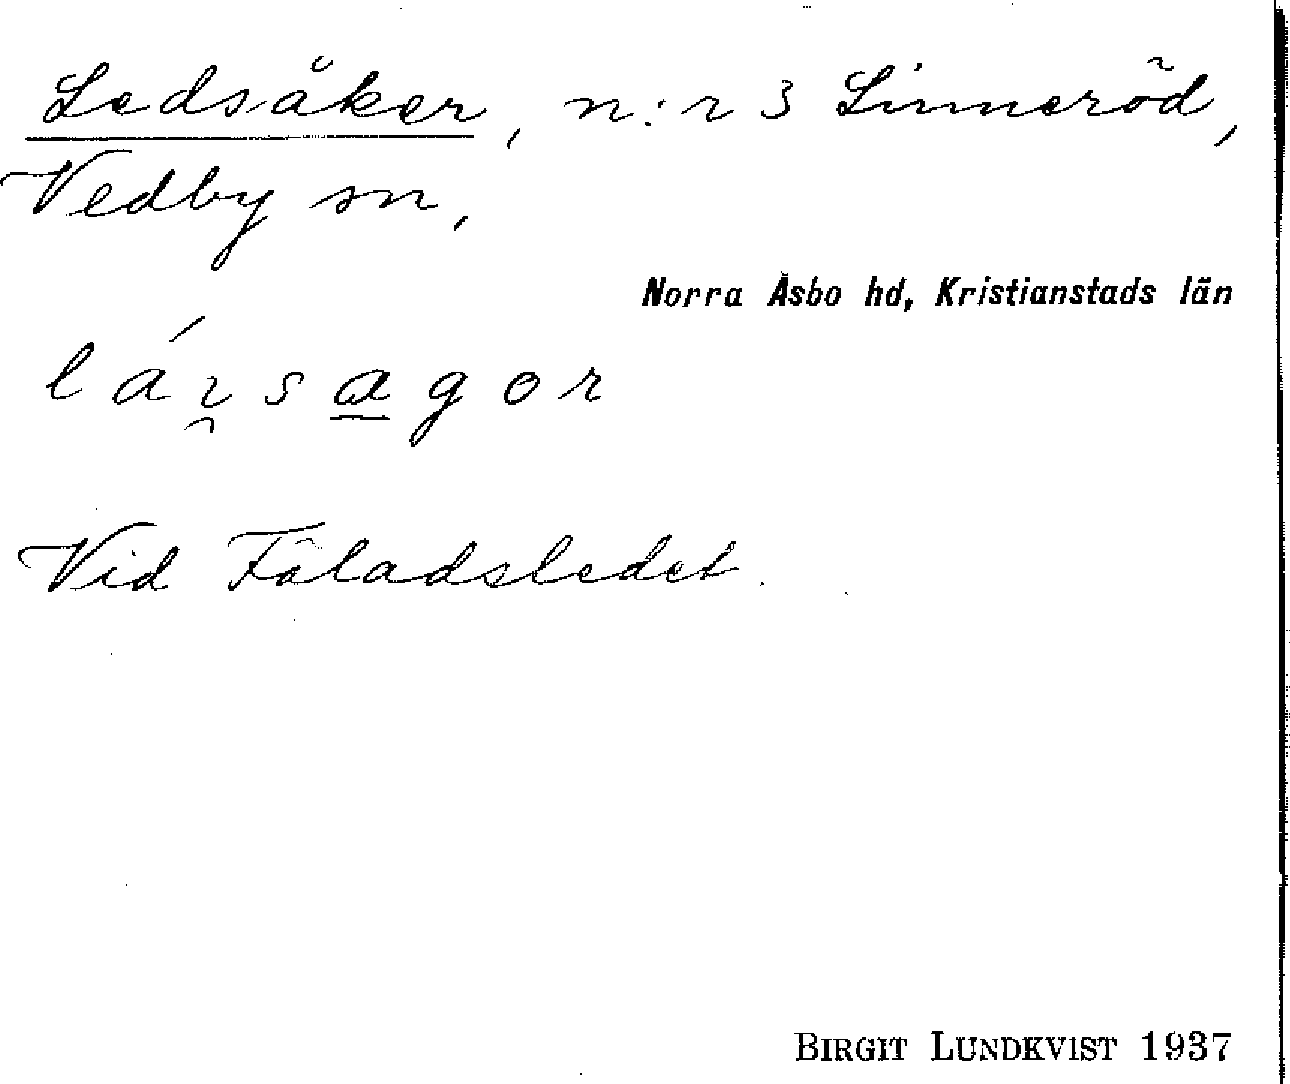 Ledsåker, n:r 3 Linneröd,
Vedby sn,
Norra Åsbo hd, Kristianstads län
lái̯sa̲gor
Vid Fäladsledet.
BIRGIT LUNDKVIST 1937